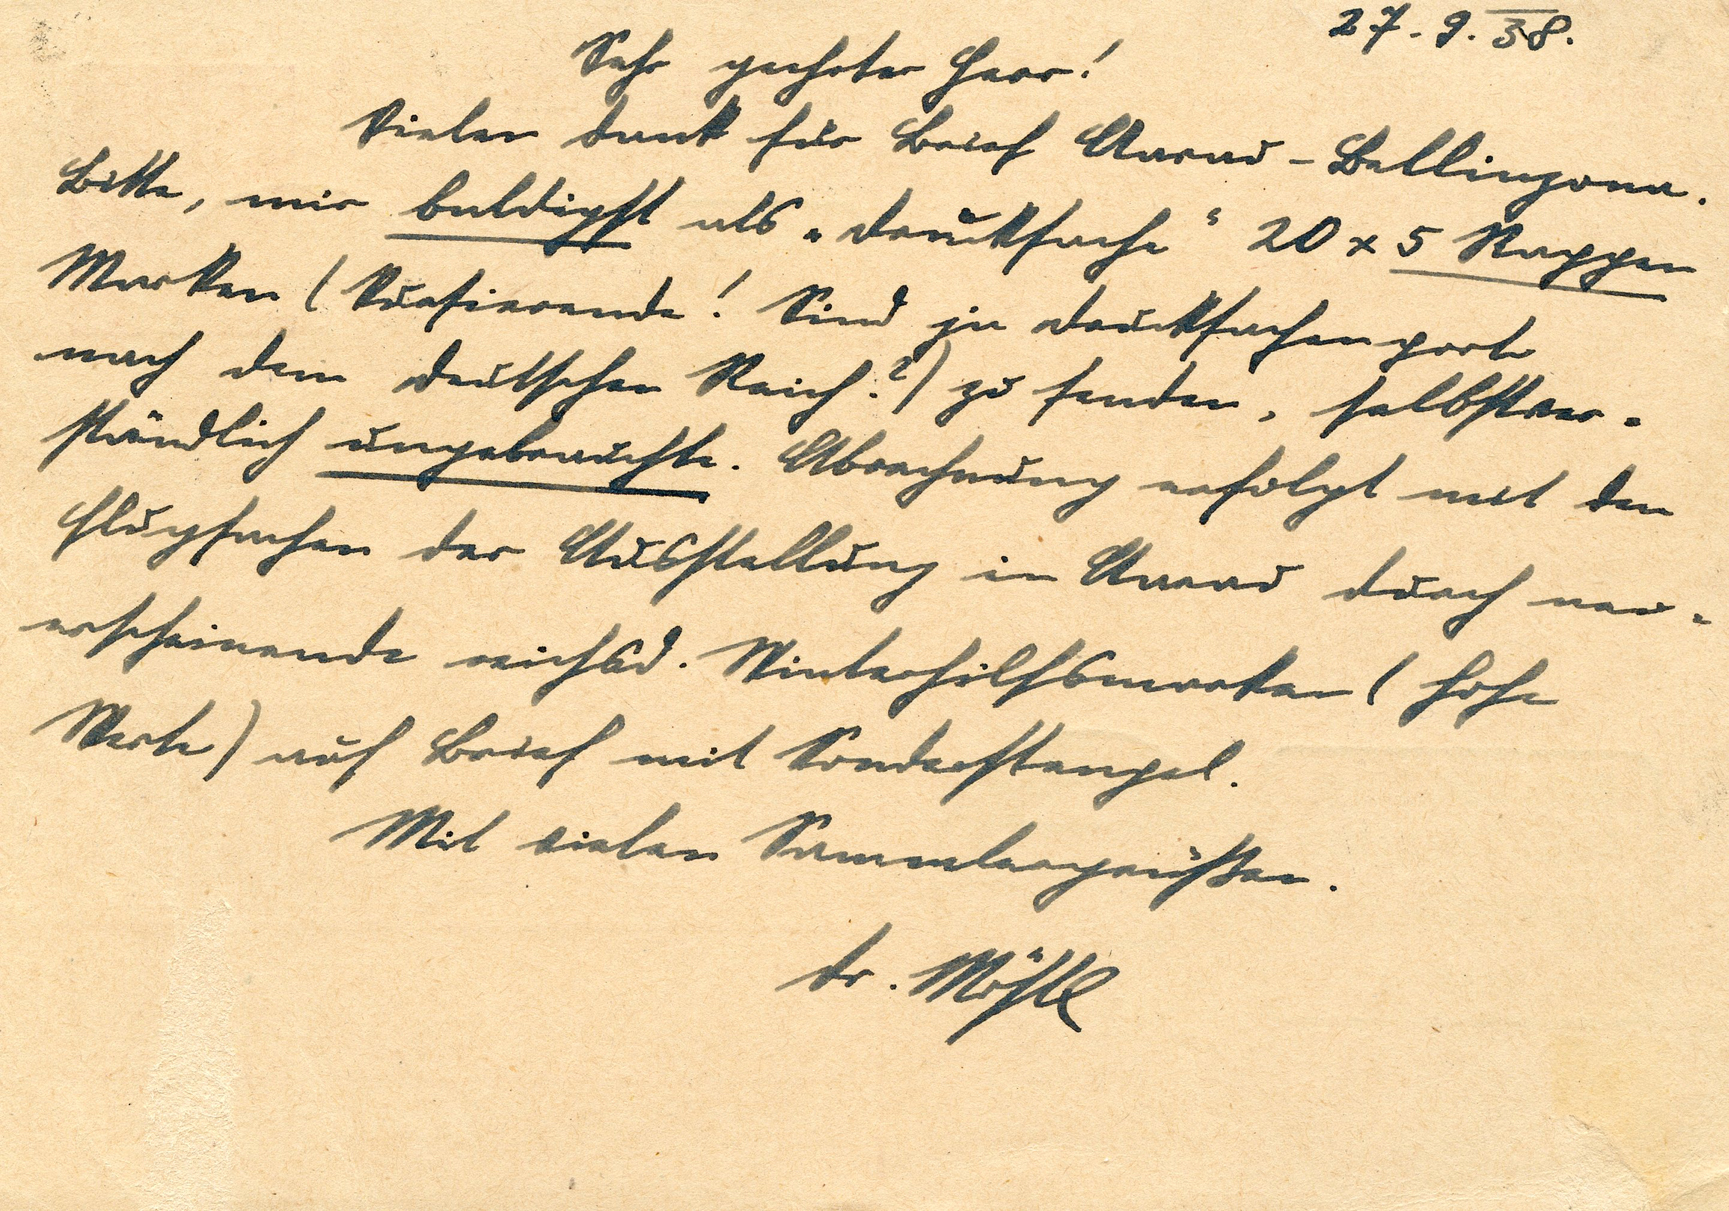 27. 9. 38.
Sehr geehrter Herr!
Vielen Dank für Brief Aarau - Bellinzona.
Bitte, mir baldigst als „Drucksache“ 20 x 5 Rappen
Marken (Kursierende! Sind ja Drucksachenporto
nach dem Deutschen Reich.?) zu senden, selbstver-
ständlich ungebrauchte. Abrechnung erfolgt mit den
Flugsachen der Ausstellung in Aarau durch neu-
erscheinende reichsd. Winterhilfsmarken (hohe
Werte) auf Brief mit Sonderstempel.
Mit vielen Sammlergrüßen.
Dr.